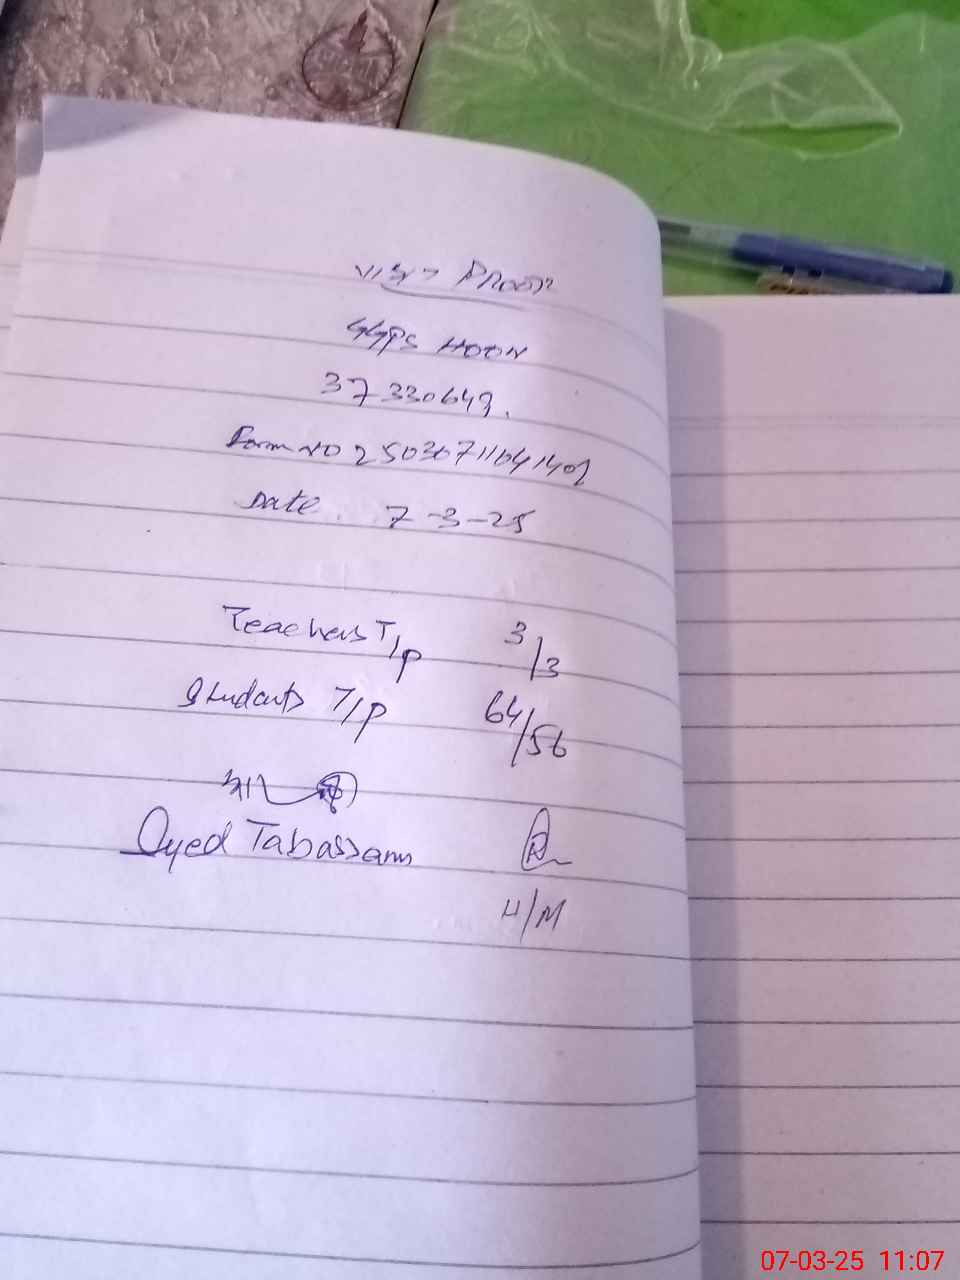 Visit Proof
GGPS HOON
37330647.
Form NO
Date. 7-3-25
Teachers T/P 3/3
Students T/P 64/56
Syed Tabassam
H/M
07-03-25 11:07